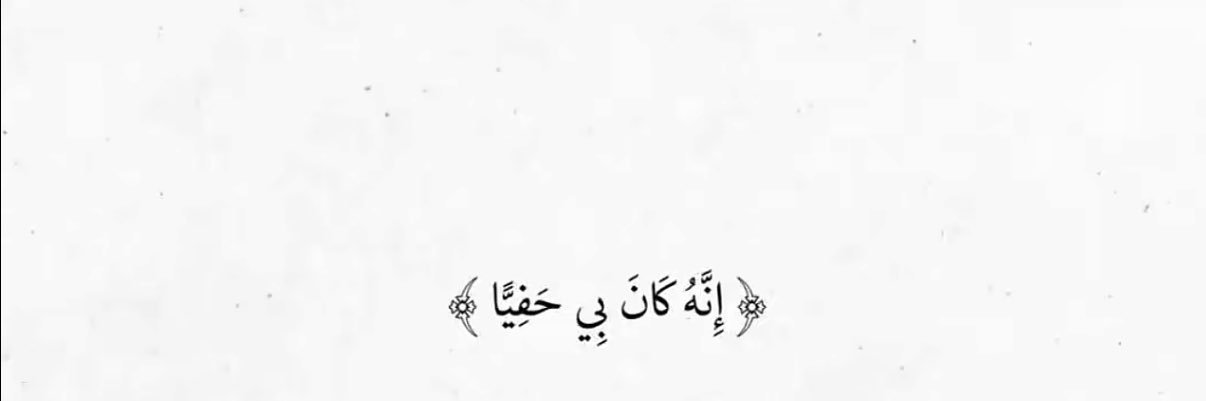 ﴿ إِنَّهُ كَانَ بِي حَفِيًّا ﴾